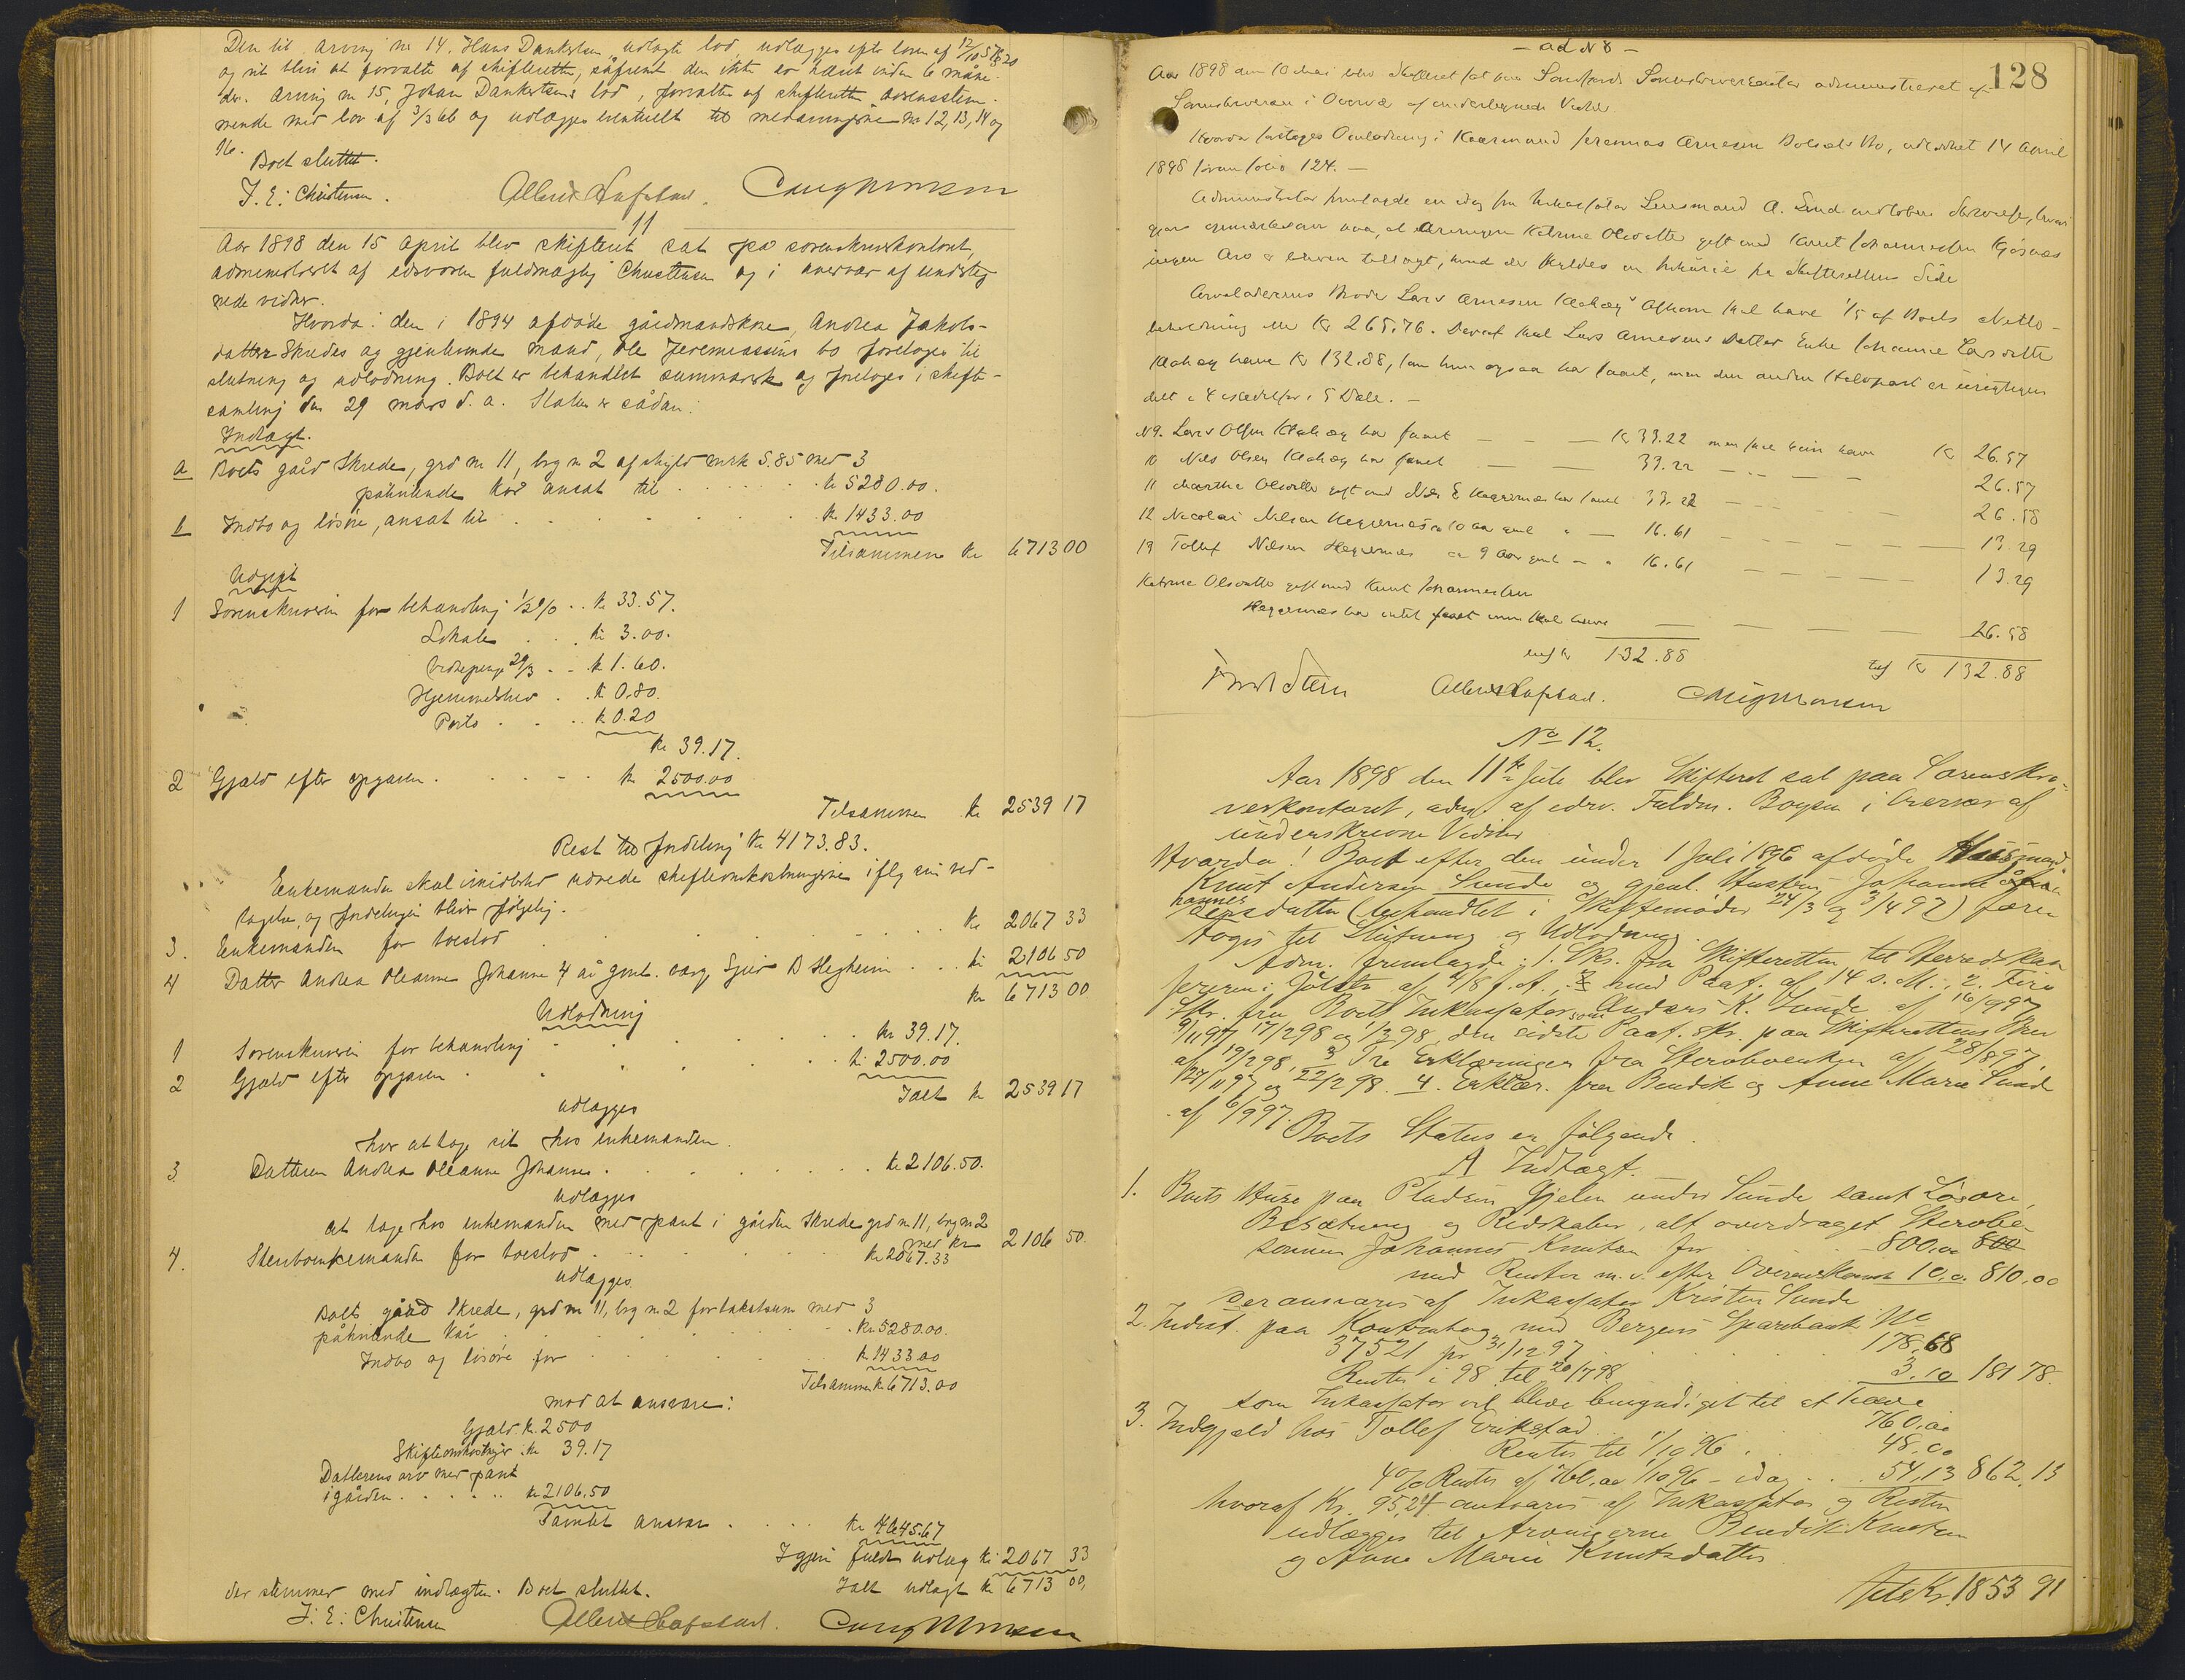 Den til arving nr 14. Hans Dankertsen udlagte lod, udlægges efter loven af 12/10
og vil blive at forvalte af skifteretten, såfremt den ikke er hævet inden 6 måne-
der. Arving nr 15, Johan Dankertsens lod, forvaltes af skifteretten overensstem-
mende med lov af og udlægges eventuelt til medarvingerne nr 12, 13, 14 og
16.
Boet sluttet.
J. E. Christensen.
11
Aar 1898 den 15 april blev skifteret sat på sorenskriverkontoret,
administreret af edsvoren fuldmægtig Christensen og i overvær af underteg
nede vidner.
Hvorda: den i 1894 afdøde gårdmandskone, Andrea Jakobs-
datter Skredes og gjenlevende mand, Ole Jeremiassens bo foretages til
slutning og udlodning. Boet er behandlet summarisk og foretoges i skifte-
samling den 29 mars d. a. Status er sådan:
Indtægt.
a Boets gård Skrede, grd nr 11, brg nr 2 af skyld mrk 5.85 med 3
påhvilende kår ansat til . . . kr 5280.00.
b Indbo og løsøre, ansat til . . . kr 1433.00
Tilsammen kr 6713 00
Udgift
1 Sorenskriveren for behandling 1/2 % . . kr 33.57.
Lokale . . kr 3.00.
Vidnepenge 29/3 . . kr 1.60.
Hjemmelsbrev . . kr 0.80.
Porto . . . kr 0.20
kr 39.17.
2 Gjæld efter opgaven . . . kr 2500.00
Tilsammen kr 2539 17
Rest til fordeling kr 4173.83.
Enkemanden skal imidlertid udrede skifteomkostningerne iflg sin ved-
tagelse, og fordelingen bliver følgelig.
3. Enkemanden for boeslod . . . kr 2067 33
4 Datter Andrea Oleanne Johanne 4 år gml. værge . . kr 2106 50
kr 6713 00
Udlodning
1 Sorenskriveren for behandling . . . kr 39.17.
2 Gjæld efter opgaven . . . kr 2500.00
Ialt kr 2539 17
udlægges
hver at tage sit hos enkemanden.
3. Datteren Andrea Oleanne Johanne . . . kr 2106.50.
Udlægges
at tage hos enkemanden med pant i gården Skrede grd nr 11, brg nr 2
med kr 2106 50.
4. Stervboenkemanden for boeslod . . . kr 2067.33
udlægges
Boets gård Skrede, grd nr 11, brg nr 2 for takstsum med 3
påhvilende kår . . . kr 5280.00.
Indbo og løsøre for . . . kr 1433.00
Tilsammen kr 6713.00
mod at ansvare:
Gjæld kr. 2500
Skifteomkostninger . kr 39.17
Datterens arv med pant
i gården . . . kr 2106.50
Samlet ansvar . . . kr 4645.67
Igjen fuldt udlæg kr 2067 33
der stemmer med indtægten. Boet sluttet. Ialt udlagt kr 6713 00,
J. E. Christensen
128
- ad No 8 -
Aar 1898 den 10 Mai blev Skifteret sat paa Søndfjords Sorenskriverkontor administreret af
Sorenskriveren i Overvær af undertegnede Vidner
Hvorda foretoges Omlodning i Kaarmand Jeremias Arnesen bo, udloddet 14 April
1898 folio 124. —
Administrator fremlagde en idag fra Inkassator Lensmand A. Sunde indløben Skrivelse, hvori
gjøres opmærksom paa, at Arvingen Katrine Olsdatter gift med Knut Johannessen
ingen Arv er bleven tillagt, hvad der skyldes en Inkurie fra Skifterettens Side
Arveladerens Broder Lars Arnesen Afkom skal have 1/5 af Boets Netto-
beholdning eller Kr 265.76. Deraf skal Lars Arnesens Datter Enke Johanne Larsdatter
have Kr 132.88, som hun ogsaa har faaet, men den anden Halvpart er urigtigen
delt i 4 istedetfor i 5 Dele. —
No 9. Lars Olsen har faaet — — Kr 33.22 men skal kun have Kr 26.57
10 Nils Olsen har faaet — — 33.22 — — 26.57
11 Martha Olsdatter gift med Nils E. har faaet 33.22 — — 26.58
12 Nicolai Nilsen 10 Aar gml — 16.61 — — 13.29
13 Tollef Nilsen ca 9 Aar gml — 16.61 — — 13.29
Katrine Olsdatter gift med Knut Johannessen
har intet faaet men skal have — — 26.58
132.88 Kr 132.88
No 12.
Aar 1898 den 11te Juli blev Skifteret sat paa Sorenskri-
verkontoret, adm. af edsv. Fuldm. Boysen i Overvær af
underskrevne Vidner
Hvorda: Boet efter den under 1 Juli 1896 afdøde Husmand
Knut Andersen Sunde og gjenl. Hustru Johanne
hannesdatter (behandlet i Skiftemøder 24/3 og 3/4 97) fore-
toges til Slutning og Udlodning.
Adm. fremlagde: 1. Skr. fra Skifteretten til Herredskas-
sereren i Jølster af 4/8 f. A. med Paat. af 14 s. M.; 2. Fire
Skr. fra Boets Inkassator Anders K. Sunde af 16/9 97
9/11 97 17/2 98 og 1/3 98, den sidste Paat. skr. paa Skifterettens Brev
af 19/2 98, 3 Tre Erklæringer fra Stervboenken af 28/8 97,
27/11 97 og 22/2 98. 4. Erklær. fra Bendik og Anne Marie Sunde
af 6/9 97.
Boets Status er følgende.
A Indtægt.
1. Boets Huse paa Pladsen Gjelen under Sunde samt Løsøre,
Besætning og Redskaber, alt overdraget Stervbo-
sønnen Johannes Knutsen for . . . 800.00
med Renter m. v. efter Overenskomst 10.00 810,00
Der ansvares af Inkassator Kristen Sunde
2. Indest. paa Kontrabog med Bergens Sparebank No
37521 pr 31/12 97 . . . 178,68
Renter i 98 til 20/7 98 3.10 181 78.
som Inkassator vil blive bemyndiget til at hæve
3. Indgjæld hos Tollef Erikstad . . 760,00
Renter til 1/10 96 . . . 48,00
4 % Renter af 760.00 1/10 96 - idag . . . 54,13 862,13
hvoraf Kr. 95,24 ansvares af Inkassator og Resten
udlægges til Arvingerne Bendik Knutsen
og Anne Marie Knutsdatter
Tils Kr. 1853 91